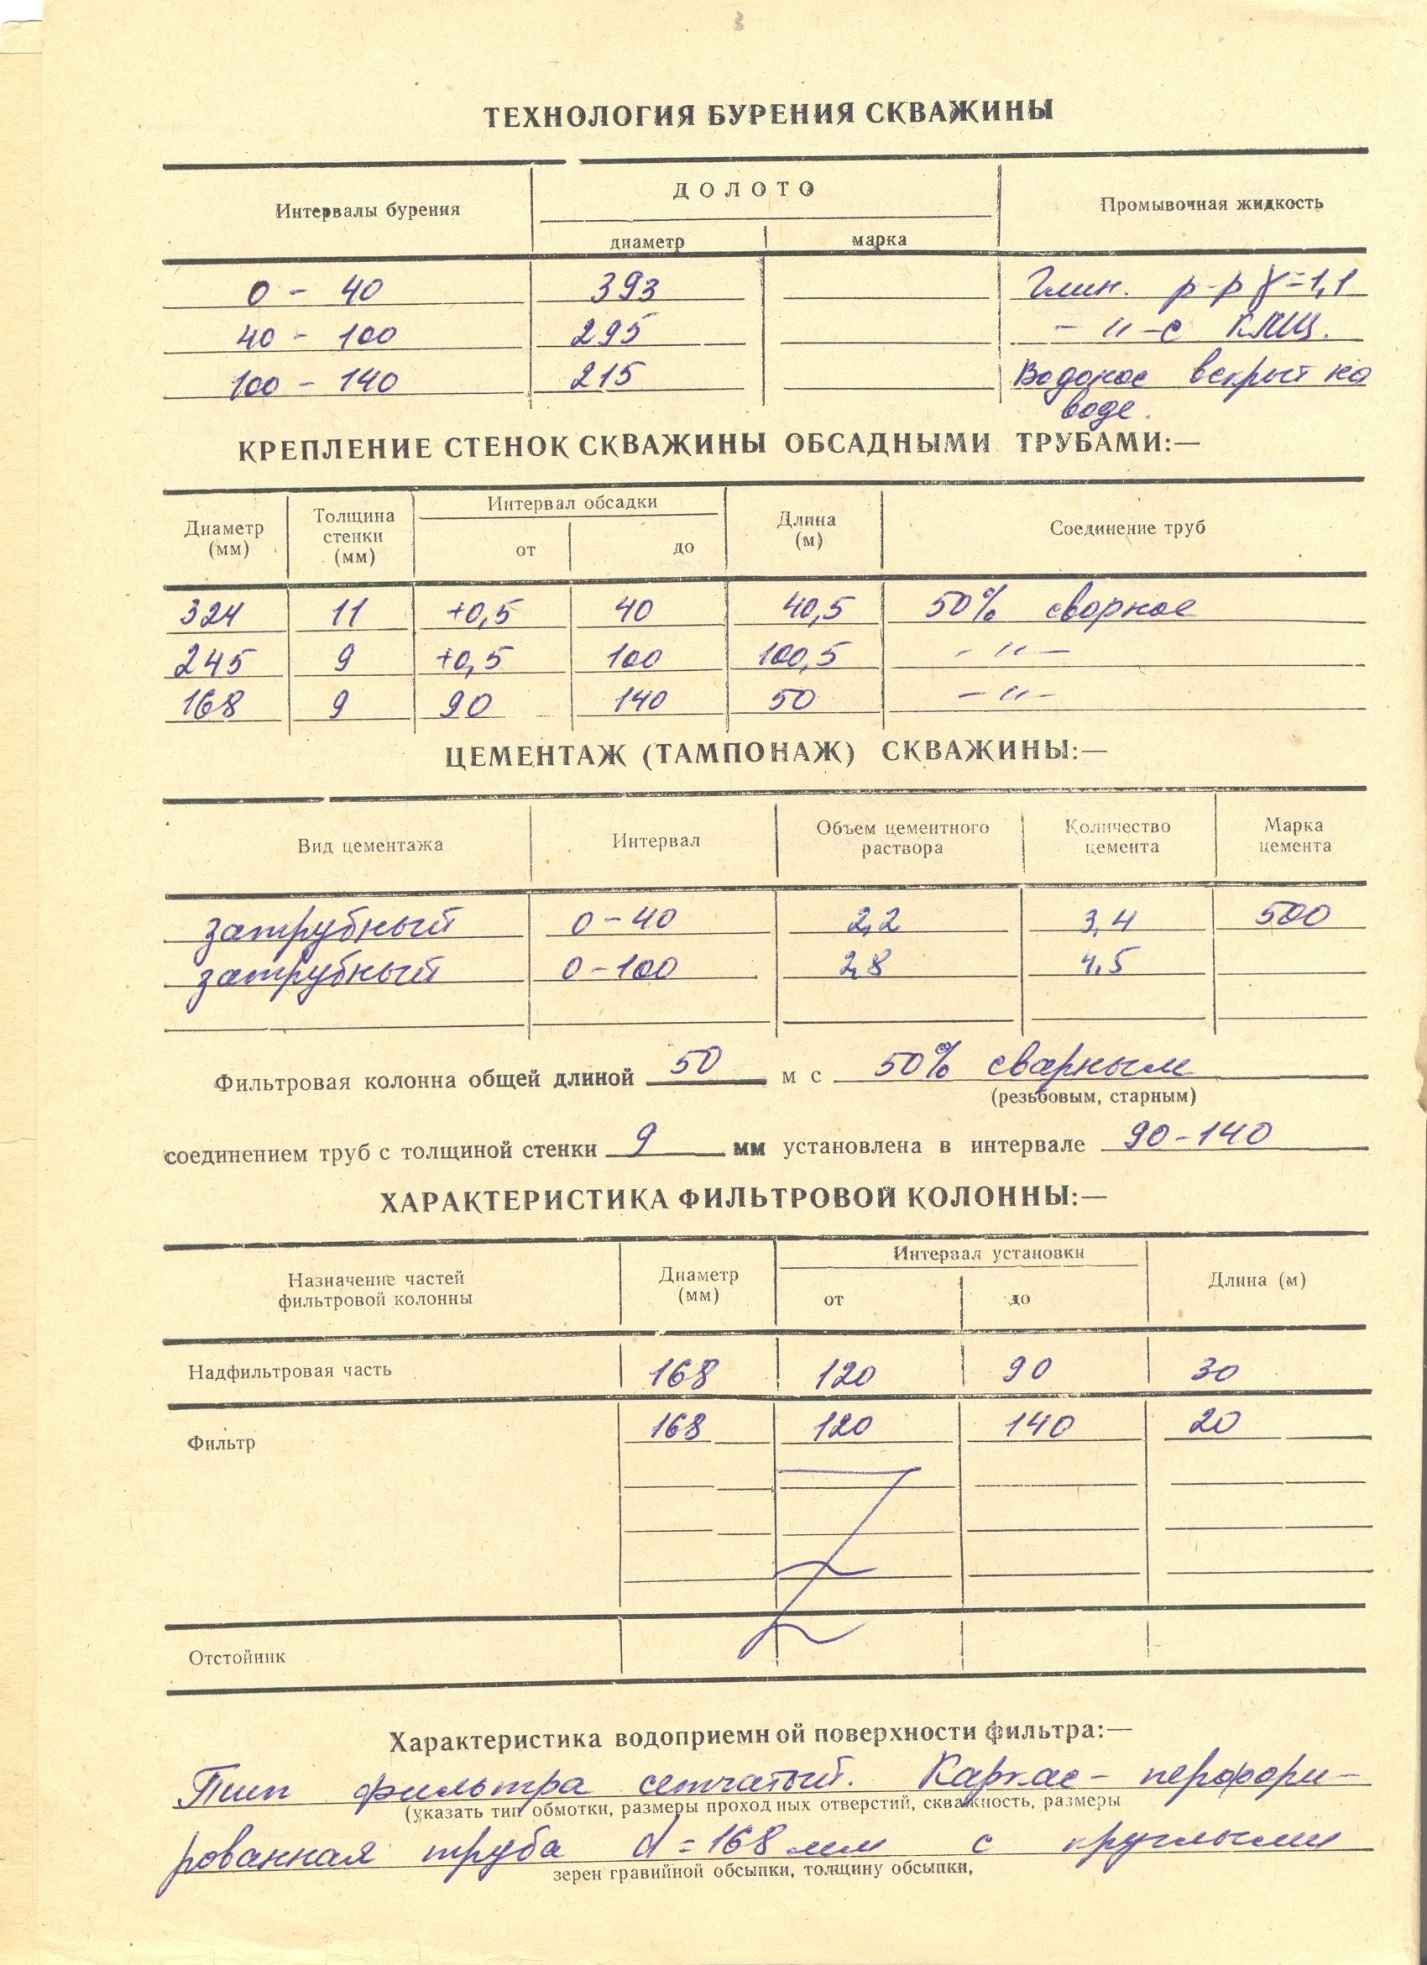 3
ТЕХНОЛОГИЯ БУРЕНИЯ СКВАЖИНЫ
Интервалы бурения ДОЛОТО Промывочная жидкость
диаметр марка
0 - 40 393 Глин. р-р γ=1,1
40 - 100 295 - " - с КМЦ.
100 - 140 215 Водонос вскрыт на
воде.
КРЕПЛЕНИЕ СТЕНОК СКВАЖИНЫ ОБСАДНЫМИ ТРУБАМИ:—
Диаметр (мм) Толщина стенки (мм) Интервал обсадки Длина (м) Соединение труб
от до
324 11 +0,5 40 40,5 50% сварное
245 9 +0,5 100 100,5 - " -
168 9 90 140 50 - " -
ЦЕМЕНТАЖ (ТАМПОНАЖ) СКВАЖИНЫ:—
Вид цементажа Интервал Объем цементного раствора Количество цемента Марка цемента
затрубный 0-40 2,2 3,4 500
затрубный 0-100 2,8 4,5
Фильтровая колонна общей длиной 50 м с 50% сварным
(резьбовым, старным)
соединением труб с толщиной стенки 9 мм установлена в интервале 90-140
ХАРАКТЕРИСТИКА ФИЛЬТРОВОЙ КОЛОННЫ:—
Назначение частей фильтровой колонны Диаметр (мм) Интервал установки Длина (м)
от до
Надфильтровая часть 168 120 90 30
Фильтр 168 120 140 20
Отстойник
Характеристика водоприемной поверхности фильтра:—
Тип фильтра сетчатый. Каркас - перфори-
(указать тип обмотки, размеры проходных отверстий, скважность, размеры
рованная труба d=168 мм с круглыми
зерен гравийной обсыпки, толщину обсыпки,